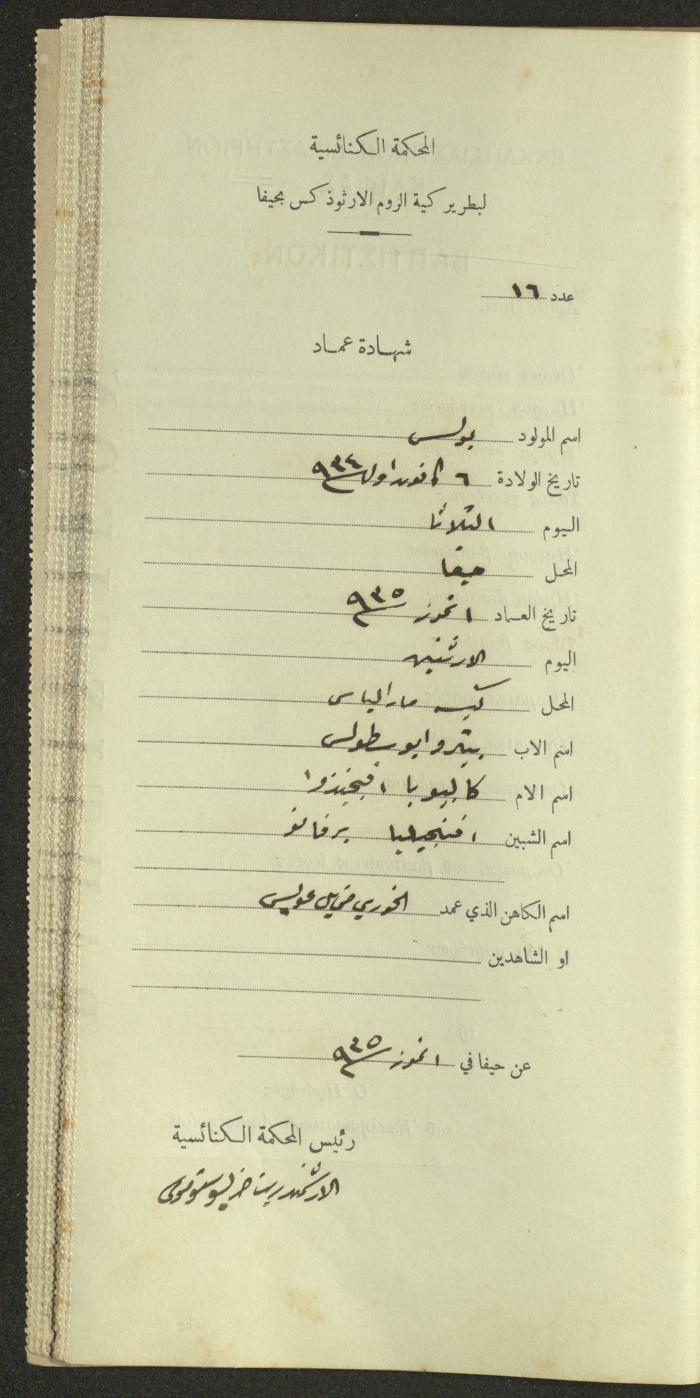 المحكمة الكنائسية
لبطريركية الروم الارثوذكس بحيفا
عدد ١٦
شهادة عماد
اسم المولود بولس
تاريخ الولادة ٦ كانون اول ٩٣٤
اليوم الثلاثا
المحل حيفا
تاريخ العماد ١ تموز ٩٣٥
اليوم الاثنين
المحل كنيسة مار الياس
اسم الاب بيترو ابوسطولس
اسم الام كاليوبا
اسم الشبين افنجيليا
اسم الكاهن الذي عمد الخوري
او الشاهدين
عن حيفا في ١ تموز ٩٣٥
رئيس المحكمة الكنائسية
الارشمندريت